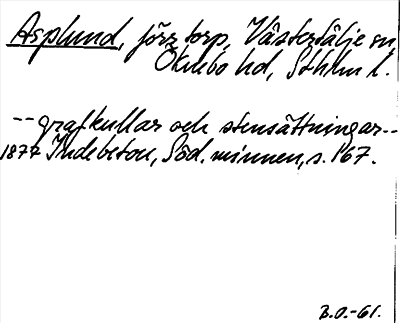 Asplund, förr torp, Västertälje sn,
Öknebo hd, Sthlm l.
-- grafkullar och stensättningar --
1877 Indebetou, Söd. minnen, s. 167.
B.O.-61.